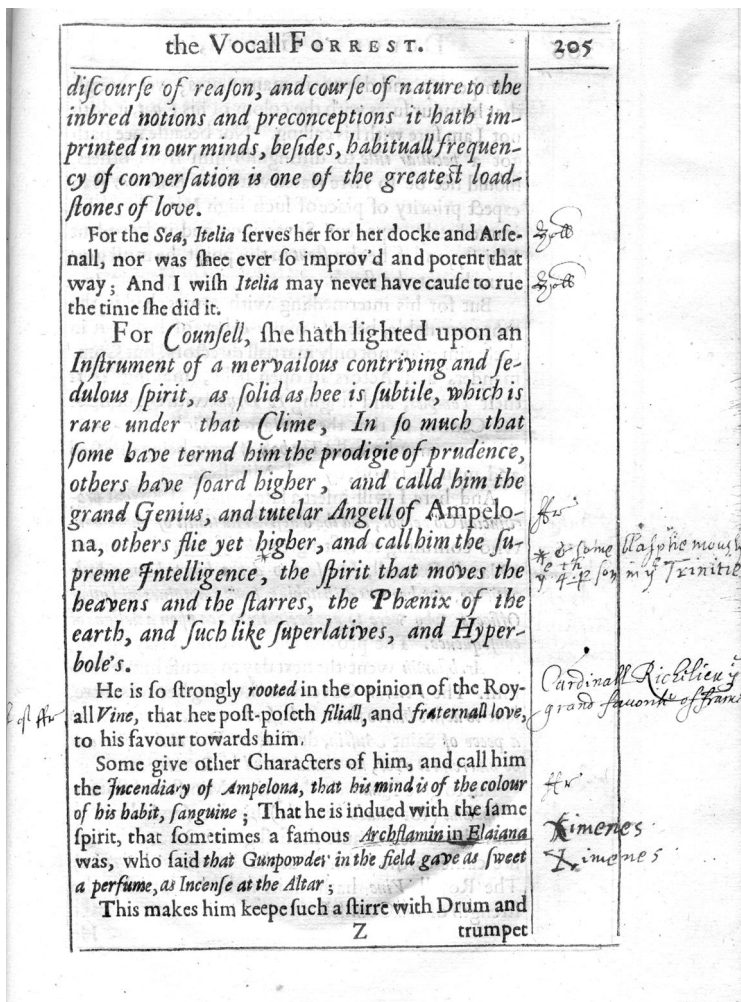 the Vocall FORREST.
205
diſcourſe of reaſon, and courſe of nature to the
inbred notions and preconceptions it hath im-
printed in our minds, beſides, habituall frequen-
cy of converſation is one of the greateſt load-
ſtones of love.
For the Sea, Itelia ſerves her for her docke and Arſe-
nall, nor was ſhee ever ſo improv'd and potent that
way; And I wiſh Itelia may never have cauſe to rue
the time ſhe did it.
For Counſell, ſhe hath lighted upon an
Inſtrument of a mervailous contriving and ſe-
dulous ſpirit, as ſolid as hee is ſubtile, which is
rare under that Clime, In ſo much that
ſome have termd him the prodigie of prudence,
others have ſoard higher, and calld him the
grand Genius, and tutelar Angell of Ampelo-
na, others flie yet higher, and call him the ſu-
preme Intelligence, * the ſpirit that moves the
heavens and the ſtarres, the Phænix of the
earth, and ſuch like ſuperlatives, and Hyper-
bole's.
He is ſo ſtrongly rooted in the opinion of the Roy-
all Vine, that hee poſt-poſeth filiall, and fraternall love,
to his favour towards him.
Some give other Characters of him, and call him
the Incendiary of Ampelona, that his mind is of the colour
of his habit, ſanguine; That he is indued with the ſame
ſpirit, that ſometimes a famous Archflamin in Elaiana
was, who ſaid that Gunpowder in the field gave as ſweet
a perfume, as Incenſe at the Altar;
This makes him keepe ſuch a ſtirre with Drum and
Z
trumpet
ffr
* & some blasphemously
Trinitie
Cardinall Richilieu yͤ
grand favorite of
ffr
Ximenes
Ximenes